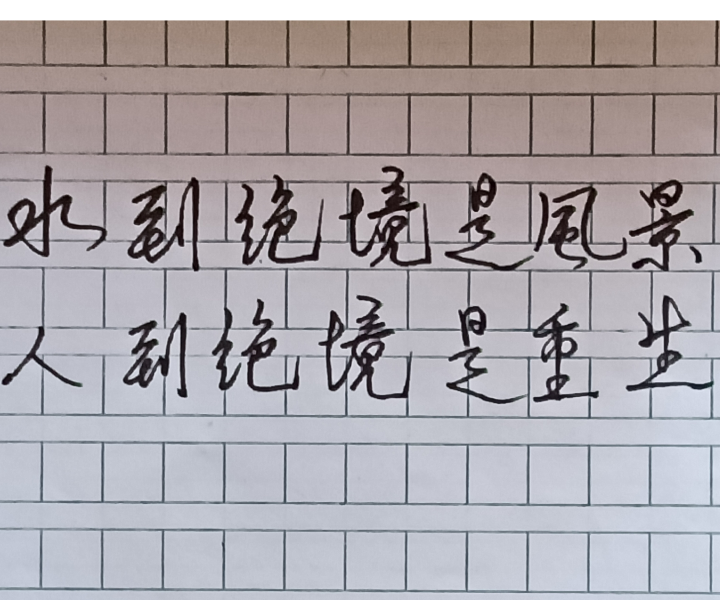 水到绝境是風景
人到绝境是重生